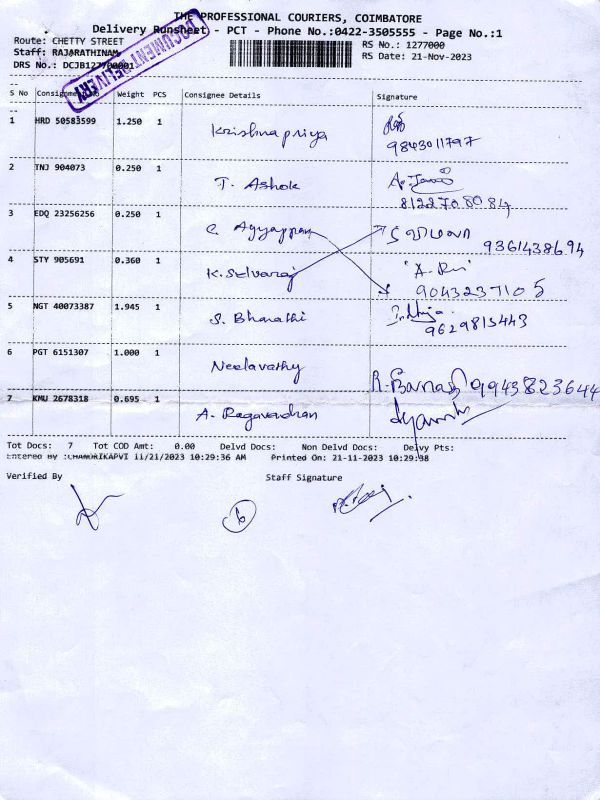 THE PROFESSIONAL COURIERS, COIMBATORE
Delivery Runsheet - PCT - Phone No.:0422-3505555 - Page No.:1
Route: CHETTY STREET
RS No.: 1277000
Staff: RAJARATHINAM
RS Date: 21-Nov-2023
DRS No.: DCJB127700001
DOCUMENT DELIVERY
S No Consignment No Weight PCS Consignee Details Signature
1 HRD 50583599 1.250 1 Krishna priya
9843011797
2 TNJ 904073 0.250 1 T. Ashok
8122708084
3 EDQ 23256256 0.250 1 C. Ayyappan
9361438694
4 STY 905691 0.360 1 K. Selvaraj
9043237105
5 NGT 40073387 1.945 1 S. Bharathi
9629815443
6 PGT 6151307 1.000 1 Neelavathy
9943823644
7 KMU 2678318 0.695 1 A. Ragavendran
Tot Docs: 7 Tot COD Amt: 0.00 Delvd Docs: Non Delvd Docs: Delvy Pts:
Entered By :CHANDRIKAPVI 11/21/2023 10:29:36 AM Printed On: 21-11-2023 10:29:38
Verified By Staff Signature
6